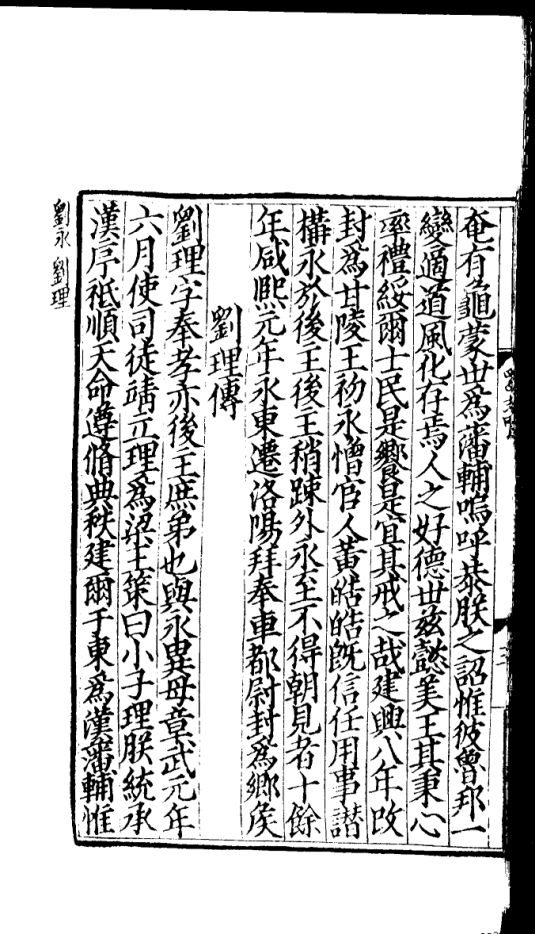 奄有龜蒙世爲藩輔嗚呼恭朕之詔惟彼魯邦一
變適道風化存焉人之好德世兹懿美王其秉心
率禮綏爾士民是饗是宜其戒之哉建興八年改
封爲甘陵王初永憎宦人黃皓皓旣信任用事譖
構永於後主後主稍踈外永至不得朝見者十餘
年咸熙元年永東遷洛陽拜奉車都尉封爲鄉侯
劉理傳
劉理字奉孝亦後主庶弟也與永異母章武元年
六月使司徒靖立理爲梁王策曰小子理朕統承
漢序祗順天命遵脩典秩建爾于東爲漢藩輔惟
劉永 劉理